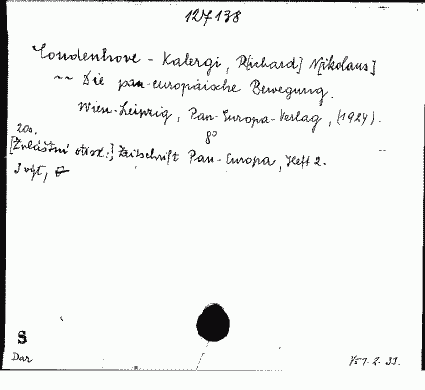 127138
Coudenhove - Kalergi, R[ichard] N[ikolaus]
~~ Die pan-europäische Bewegung.
Wien-Leipzig, Pan-Europa-Verlag, (1924).
8°
200.
[Zvláštní otisk:] Zeitschrift Pan-Europa, Heft 2.
S
Dar
2. 33.